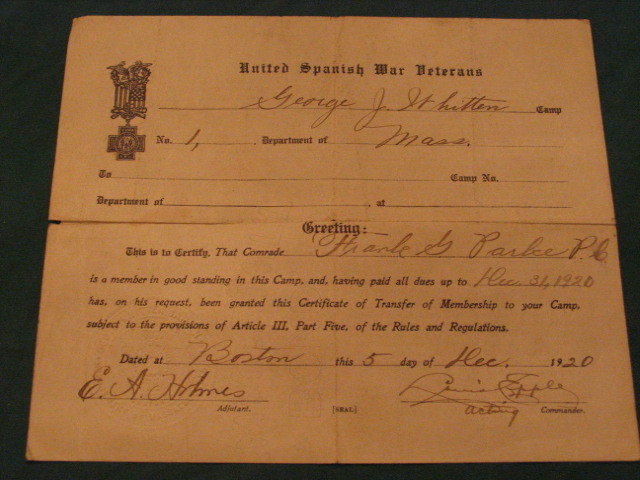 United Spanish War Veterans
George J. Whitten Camp
No. 1, Department of Mass.
To Camp No.
Department of at
Greeting:
This is to Certify, That Comrade Frank G Parlee P.C
is a member in good standing in this Camp, and, having paid all dues up to Dec 31, 1920
has, on his request, been granted this Certificate of Transfer of Membership to your Camp,
subject to the provisions of Article III, Part Five, of the Rules and Regulations.
Dated at Boston this 5 day of Dec. 1920
E. A. Holmes
Adjutant. [SEAL] acting Commander.